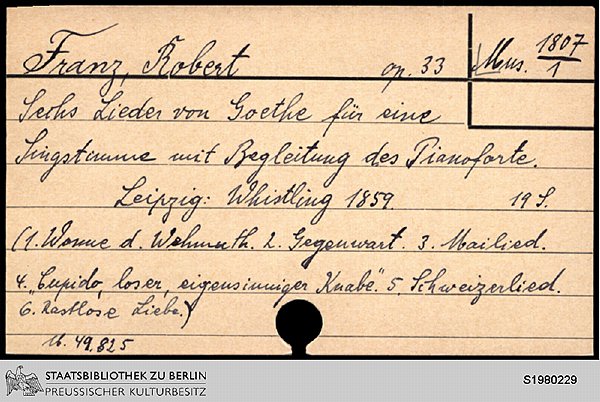 Franz, Robert op. 33 Mus. 1807/1
Sechs Lieder von Goethe für eine
Singstimme mit Begleitung des Pianoforte.
Leipzig: Whistling 1859. 19 S.
(1. Wonne d. Wehmuth. 2. Gegenwart. 3. Mailied.
4. „Cupido, loser, eigensinniger Knabe". 5. Schweizerlied.
6. Rastlose Liebe.)
49,825
STAATSBIBLIOTHEK ZU BERLIN
PREUSSISCHER KULTURBESITZ
S1980229